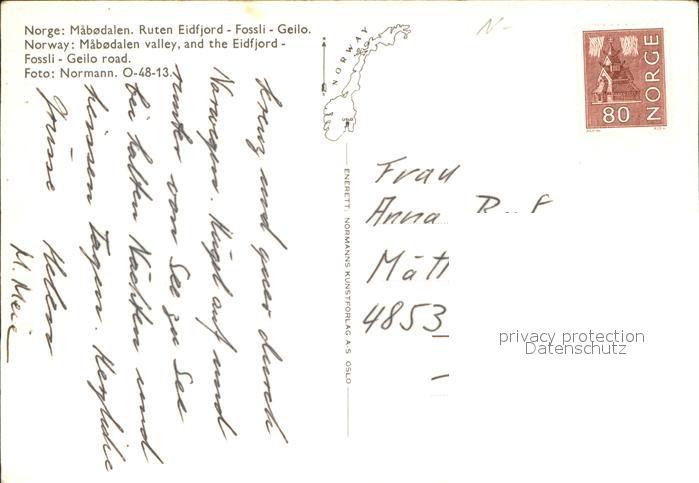 Norge: Måbødalen. Ruten Eidfjord - Fossli - Geilo.
Norway: Måbødalen valley, and the Eidfjord -
Fossli - Geilo road.
Foto: Normann. O-48-13.
kreuz und quer durch
Norwegen. Hügel auf und
runter von See zu See
bei kalten Nächten und
heissen Tagen. Herzliche
Grüsse Helen
M. Meie
NORWAY
Oslo
ENERETT: NORMANNS KUNSTFORLAG A-S OSLO
N-
NORGE
80
Frau
Anna
Mätt
4853
privacy protection
Datenschutz